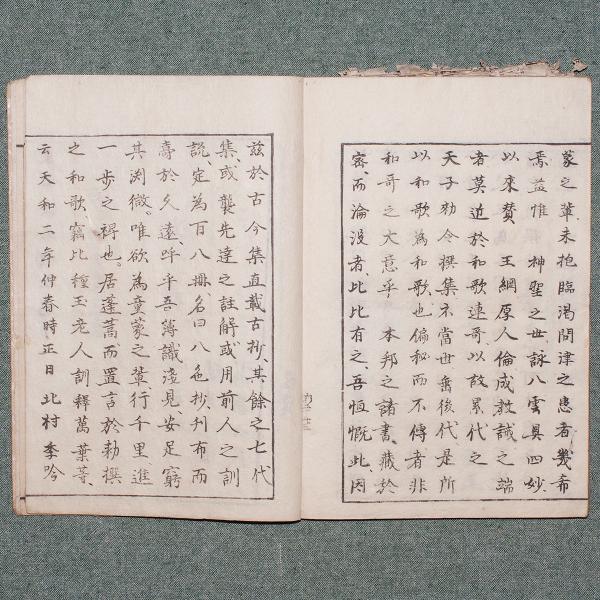 蒙之輩、未抱臨渇問津之患者幾希
焉、蓋惟　神聖之世詠八雲具四妙、
以來賛　王綱原人倫成教誡之端
者莫近於和歌遠哥以故累代之
天子勅令撰集示當世垂後代是所
以和歌為和歌也偏秘而不傳者非
和哥之大意乎　本邦之諸書、蔵於
密、而淪没者、比比有之、吾恒慨此、因
茲於古今集直載古抄、其餘之七代
集、或襲先達之註解或用前人之訓
説、定為百八冊名曰八色抄、刊布而
壽於久遠、吁乎吾薄識淺見、安足窮
其渕微。唯欲為童蒙之輩、行千里進
一歩之禆也。居蓬蒿而置言於勅撰
之和歌竊比種玉老人訓釋萬葉等、
云天和二年仲春時正日北村季吟